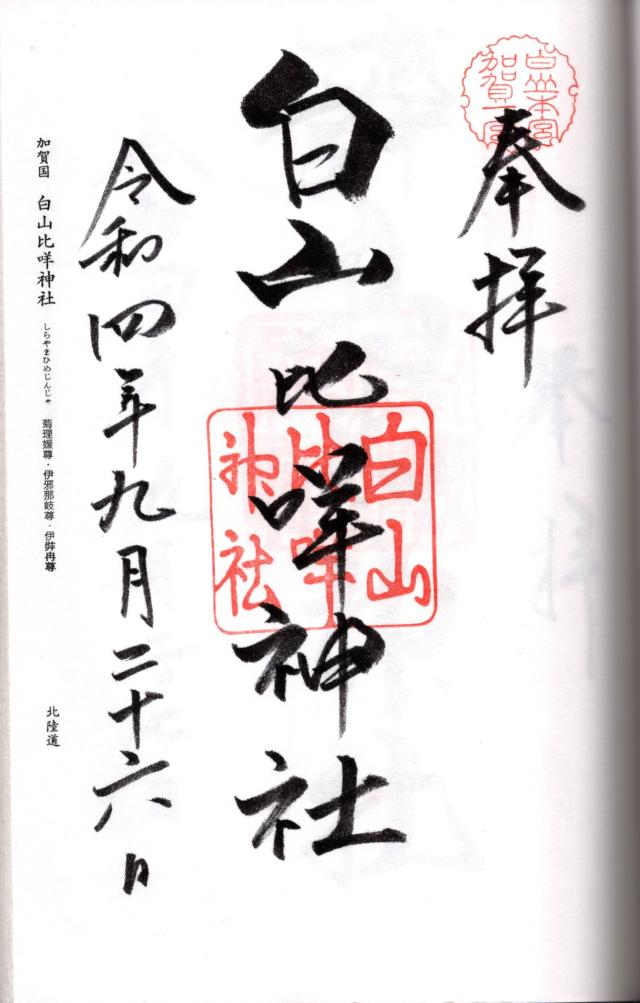 白山本宮
加賀一宮
奉拝
白山比咩神社
白山
比咩
神社
令和四年九月二十六日
加賀国 白山比咩神社 しらやまひめじんじゃ 菊理媛尊・伊邪那岐尊・伊弉冉尊 北陸道